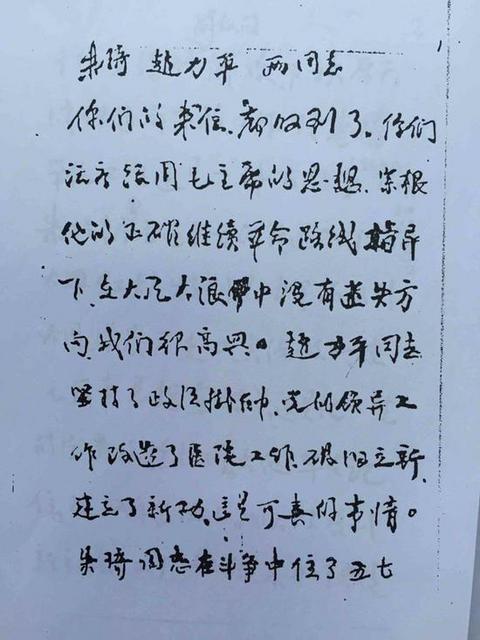 朱琦 赵力平 两同志
你们的来信，都收到了。你们
活学活用毛主席的思想，紧跟
他的正确继续革命路线指导
下，在大风大浪中没有迷失方
向，我们很高兴。赵力平同志
坚持了政治挂帅，党的领导工
作改造了医院工作，破旧立新，
建立了新功，这是可喜的事情。
朱琦同志在斗争中住了五七